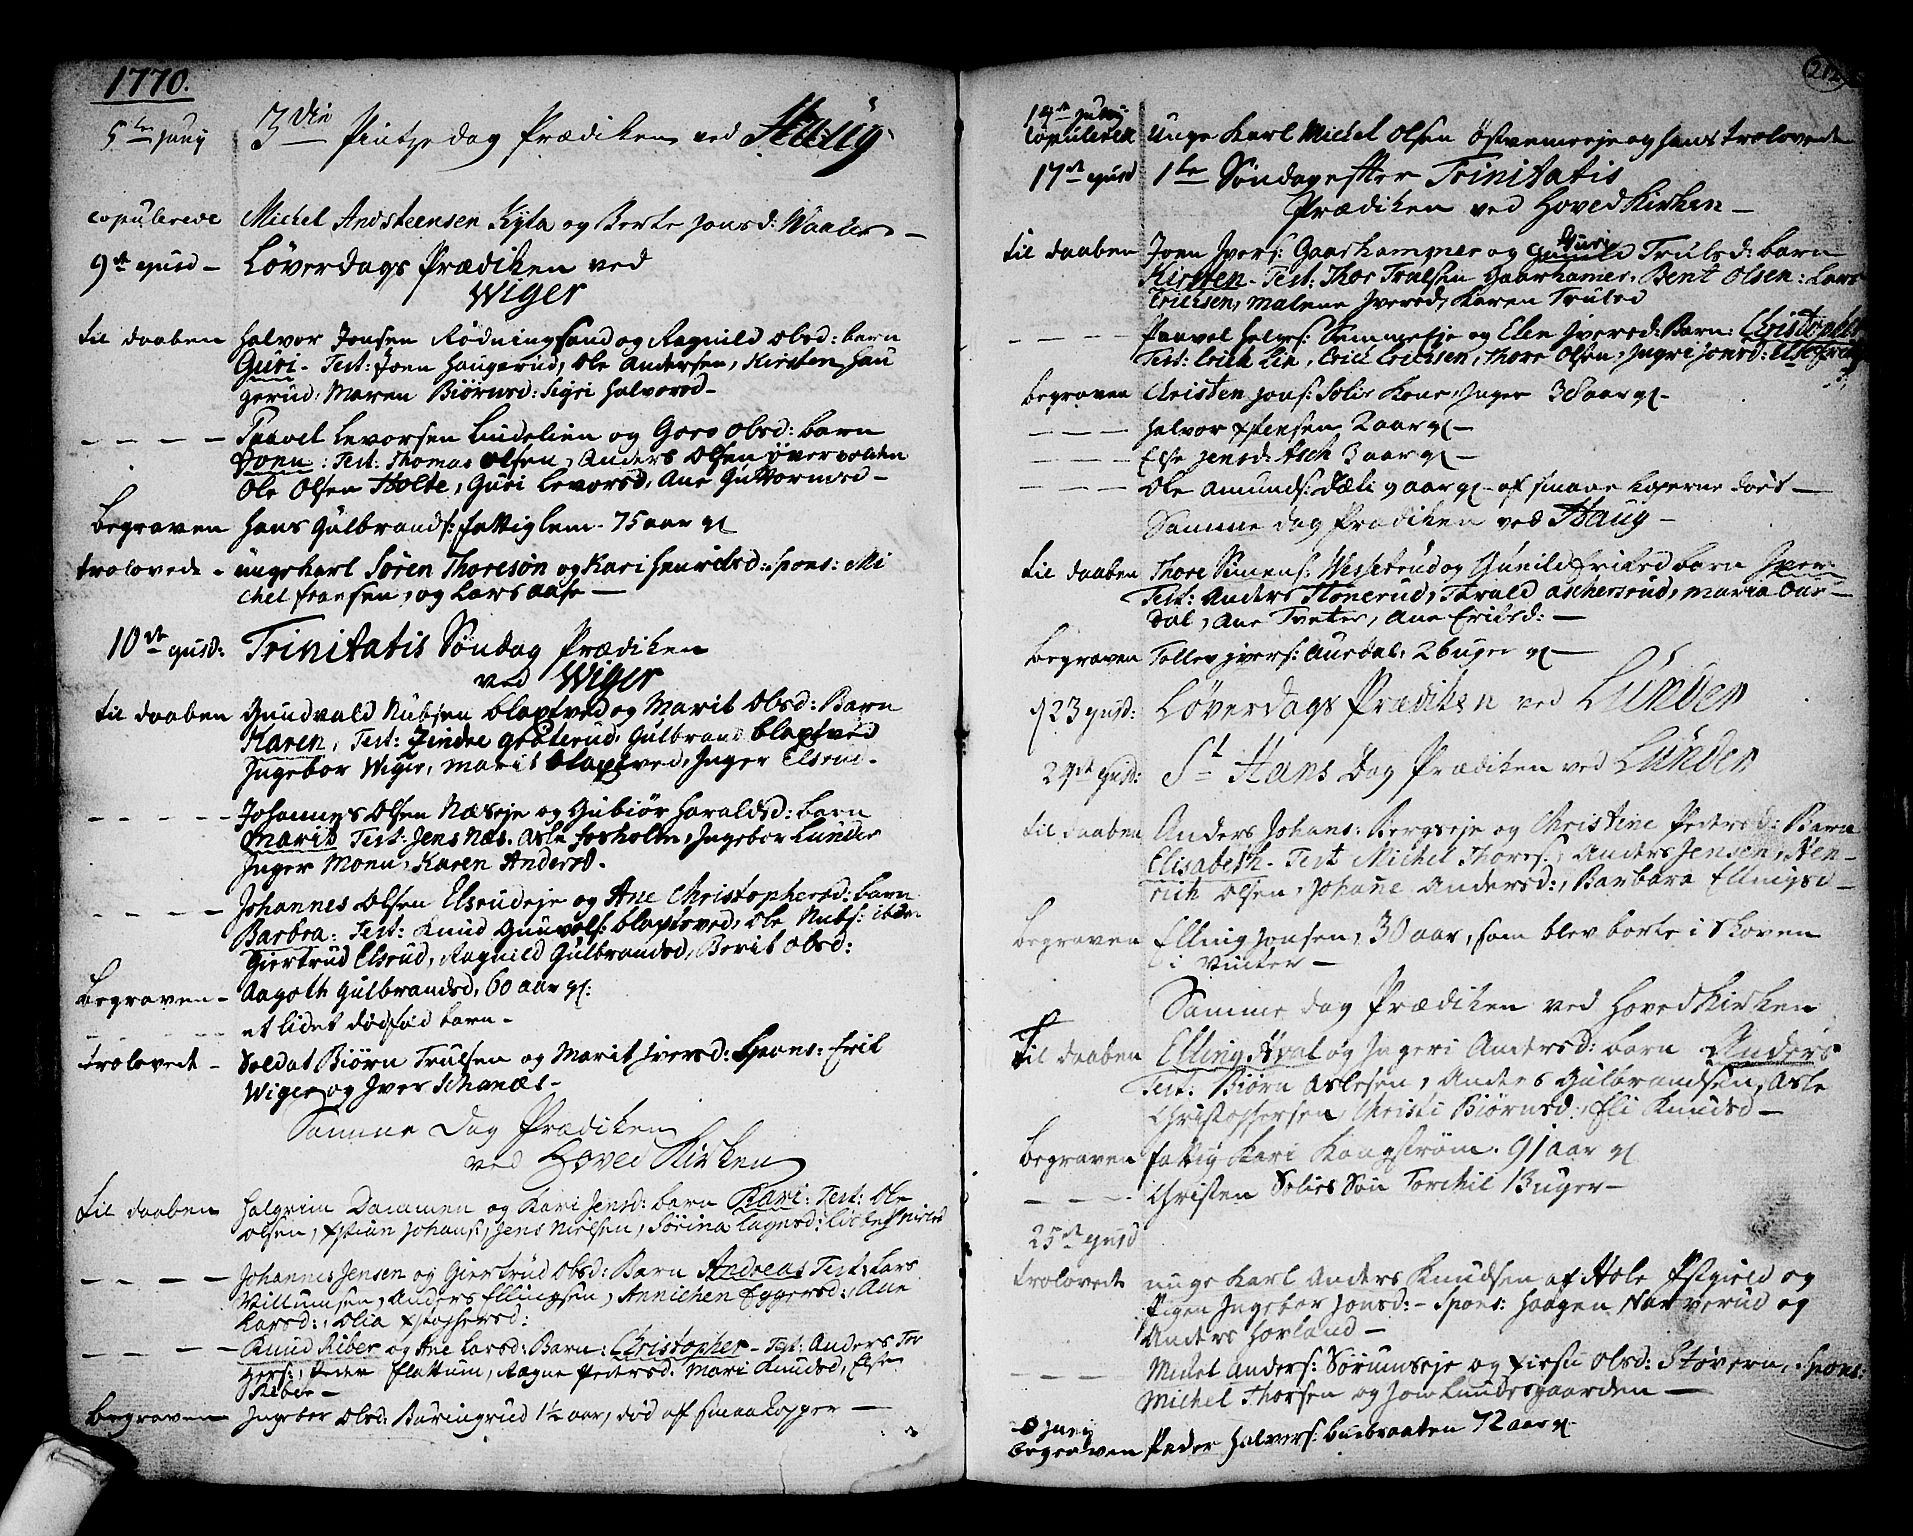 1770.
5te Junij 3die Pintzedag Prædiken ved Haug
copulerede Michel Andsteensen Kylla og Berte Jonsd: Waaler
9de ejusd Løverdags Prædiken ved
Wiger
til daaben Halvor Jonsen Rødningsand og Ragnild Olsd: barn
Guri - Test: Joen Haugerud, Ole Andersen, Kirsten Hau
gerud: Maren Biørnsd: Sigri Halvorsd -
Paavel Levorsen Lindelien og Goro Olsd: barn
Joen: Test: Thomas Olsen, Anders Olsen
Ole Olsen Holte, Guri Levorsd, Ane Guttormsd -
Begraven Hans Gulbrands: fattiglem - 75 aar gl
trolovede - ungekarl Søren Thoreson og Kari Henrichsd: Spons: Mi
chel Fransen, og Lars Aase -
10de ejusd: Trinitatis Søndag Prædiken
ved Wiger
til daaben Gundvald Nubsen Blaxtved og Marit Olsd: Barn
Karen, Test: Zindre Græterud, Gulbrand Blaxtved
Ingebor Wiger, Marit Blaxtved, Inger Elsrud -
Johannes Olsen Næseje og Gubiør Haraldsd: barn
Marit Test: Jens Næs. Asle Foxholm, Ingebor Lunder
Inger Moen, Karen Andersd -
Johannes Olsen Elsrudeje og Ane Christophersd: barn
Barbra: Test: Knud Gunvols: Blaxtved, Ole Nubs: ibidem
Giertrud Elsrud, Ragnild Gulbrandsd, Berit Olsd:
Begraven - Aagoth Gulbrandsd, 60 aar gl:
et lidet dødfød barn -
trolovede - Soldat Biørn Trulsen og Marit Iversd: Spons: Erik
Wiger og Iver Schanæs -
Samme Dag Prædiken
ved Hoved Kirken
til daaben Halgrim Dammen og Kari Jensd: barn Kari: Test: Ole
Olsen, Xstian Johans:, Jens Nielsen, Sørina
Johannes Jensen og Giertrud Olsd: Barn Andreas Test: Lars
Villumsen, Anders Ellingsen, Annichen Eggersd:, Ane
Larsd:, Olia Xstophersd:
Knud Riber og Ane Larsd: Barn: Christopher - Test: Anders Tor
gers:, Peder Flattum, Ragne Pedersd. Mari Knudsd, Else
Riber -
Begraven Ingebor Olsd: Buringrud 1½ aar, død af smaa Kopper -
212
19de Junij
Copulerede Unge Karl Michel Olsen og hans trolovede
17de ejusd 1te Søndag efter Trinitatis
Prædiken ved Hoved Kirken -
til daaben Joen Ivers: Gaarhammer og Guri Trulsd: barn
Kirsten - Test: Thor Trulsen Gaarhamer, Bent Olsen: Lars
Erichsen, Malene Iversd, Karen Trulsd
Paavel Helges: Semmeeje og Elen Iversd: Barn: Christopher
Test: Erich Lie, Erich Erichsen, Thore Olsen, Ingri Jonsd:
begraven Christen Jons: Solis Kone, Inger 38 aar gl -
Halvor Xstensen 2 aar gl -
Else Jensd: Asch 3 aar gl -
Ole Amunds: Dæli 9 aar gl - af smaae Koperne død -
Samme dag Prædiken ved Haug -
til daaben Thore Simens: og Gunild Eriksd barn Iver
Test: Anders Stonerud, Harald Aschersrud, Maria Aur
dal, Ane Tveter, Ane Eriksd: -
begraven Tollev Ivers: Aurdal, 2 Buger gl -
d 23 ejusd: Løverdags Prædiken ved Lunder
24de ejusd: St Hans Dag Prædiken ved Lunder
til daaben Anders Johans: Bergseje og Christine Pedersd: Barn
Elisabeth - Test Michel Thores:, Anders Jensen, Hen
rich Olsen, Johane Andersd:, Barbara Ellingsd -
begraven Elling Jonsen, 30 aar, som blev borte i Skoven
i Vinter -
Samme dag Prædiken ved Hoved Kirken
til daaben Elling Hval og Ingeri Andersd: barn Anders
Test: Biørn Aslesen, Anders Gulbrandsen, Asle
Christophersen, Christi Biørnsd:, Eli Knudsd -
begraven fattig Kari Kongstrøm. 91 aar gl
Christen Solies Søn Torchil 1 Buger -
25de ejusd
trolovede unge Karl Anders Knudsen af Hole Pstgield og
Pigen Ingebor Jonsd: - Spons: Haagen Narverud og
Anders Horland -
Michel Anders: Sørumseje og Olsd: Støvern, Spons:
Michel Thorsen og Jon Lundesgaarden -
Junij
begraven Peder Halvers: Buibraaten 72 aar gl